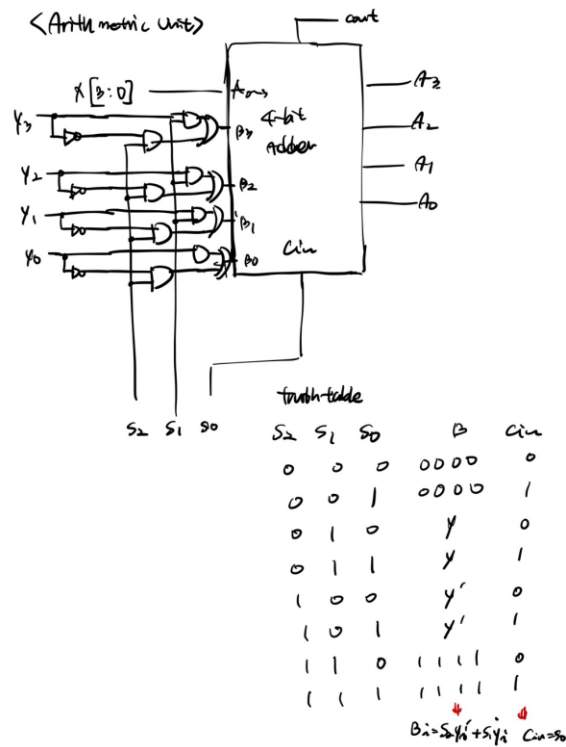 <Arithmetric Unit>
Cout
X[3:0]
A0~3
Y3
B3
4-bit
Adder
A3
A2
Y2
B2
A1
Y1
B1
A0
Y0
B0
Cin
S2 S1 S0
truth-table
S2 S1 S0 B Cin
0 0 0 0000 0
0 0 1 0000 1
0 1 0 Y 0
0 1 1 Y 1
1 0 0 Y' 0
1 0 1 Y' 1
1 1 0 1111 0
1 1 1 1111 1
Bi=S2yi'+S1yi Cin=S0